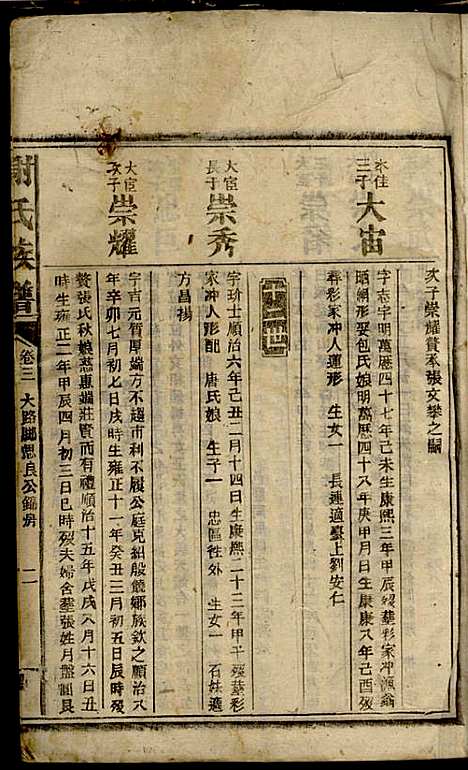 次子崇耀贅本張文攀之嗣
永佳
三子
大宙
字志宇明萬曆四十七年己未生康熙三年甲辰歿葬彩家冲漁翁
晒網形娶包氏娘明萬曆四十八年庚申月日生康康八年己酉歿
葬彩家冲人蓮形 生女一 長連適臺上劉安仁
大宦
長子
崇秀
字玠士順治六年己丑二月十四日生康熙二十三年甲子歿葬彩
家冲人形配 唐氏娘 生子一 忠區徃外 生女一 石妹適
方昌揚
大宦
次子
崇耀
字吉元質厚端方不趨市利不履公庭克紹殷饒鄉族欽之順治八
年辛卯七月初七日戌時生雍正十一年癸丑三月初五日辰時歿
贅張氏秋娘慈惠端莊實而有禮順治十五年戊戌八月十六日丑
時生雍正二年甲辰四月初三日巳時歿夫婦合葬張姓月盤

謝氏族譜 卷三 大路鄉 良公 房 二